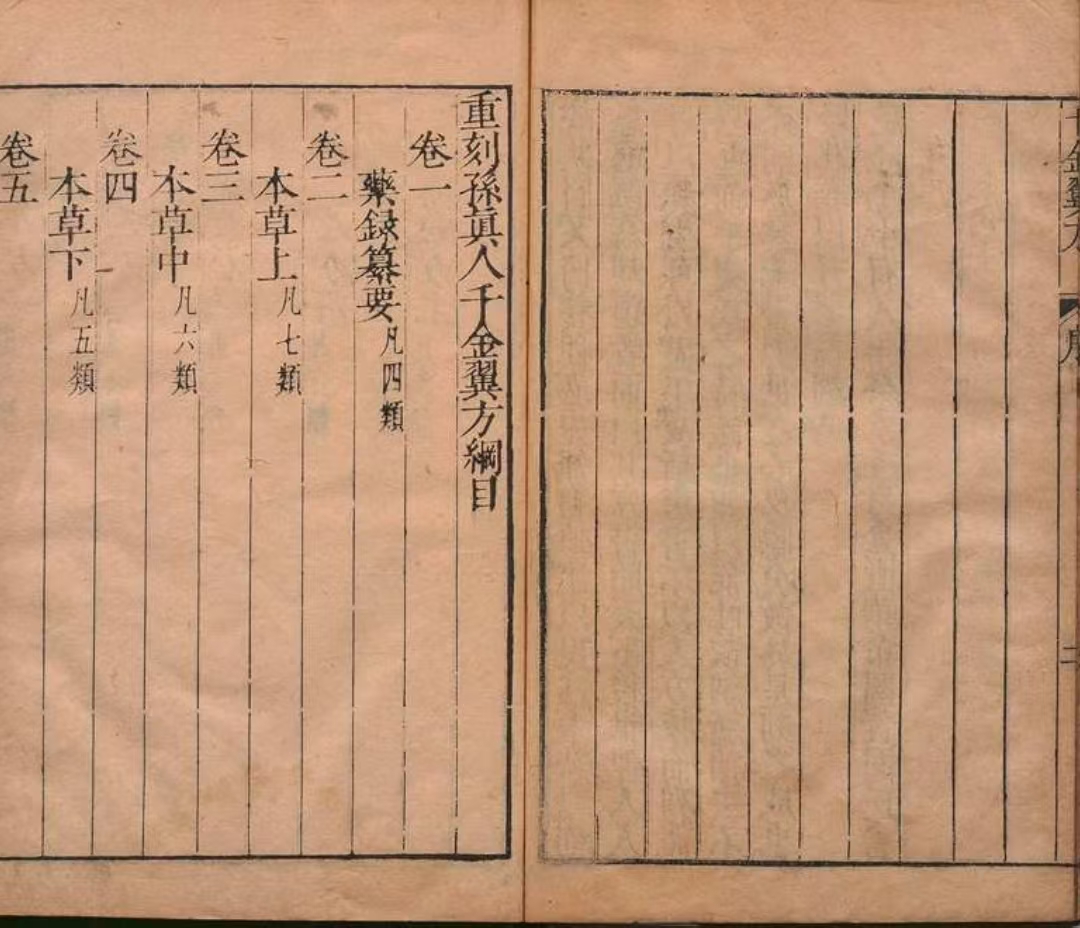 千金翼方 序 二
重刻孫眞人千金翼方綱目
卷一
藥録纂要凡四類
卷二
本草上凡七類
卷三
本草中凡六類
卷四
本草下凡五類
卷五